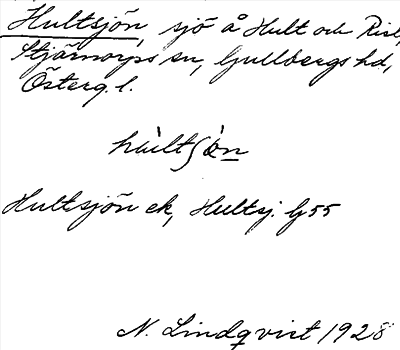 Hultsjön, sjö å Hult och Risl,
Stjärnorps sn, Gullbergs hd,
Österg. l.
Hultsjön ek, Hultsj. G55
N. Lindqvist 1928